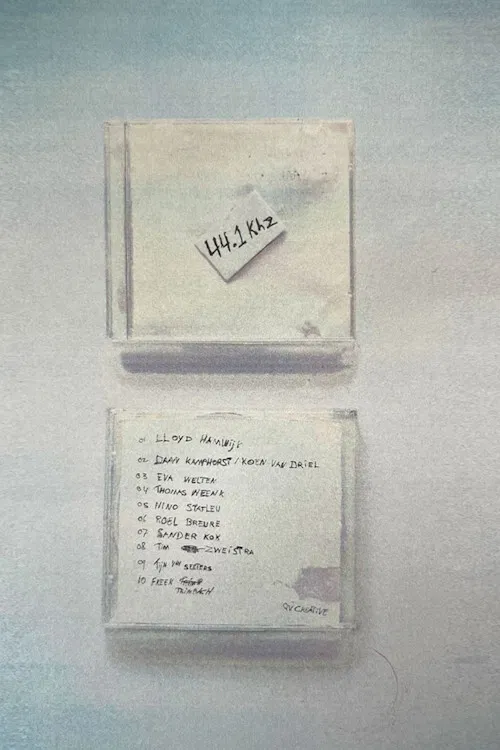 44.1 Khz
01 LLOYD HAMWIJK
02 DAAN KAMPHORST / KOEN VAN DRIEL
03 EVA WELTEN
04 THOMAS WEENK
05 NINO STATLEU
06 ROEL BREURE
07 SANDER KOK
08 TIM ZWEISTRA
09 TIJN VAN SEETERS
10 FREEK
TRIMBACH
CREATIVE